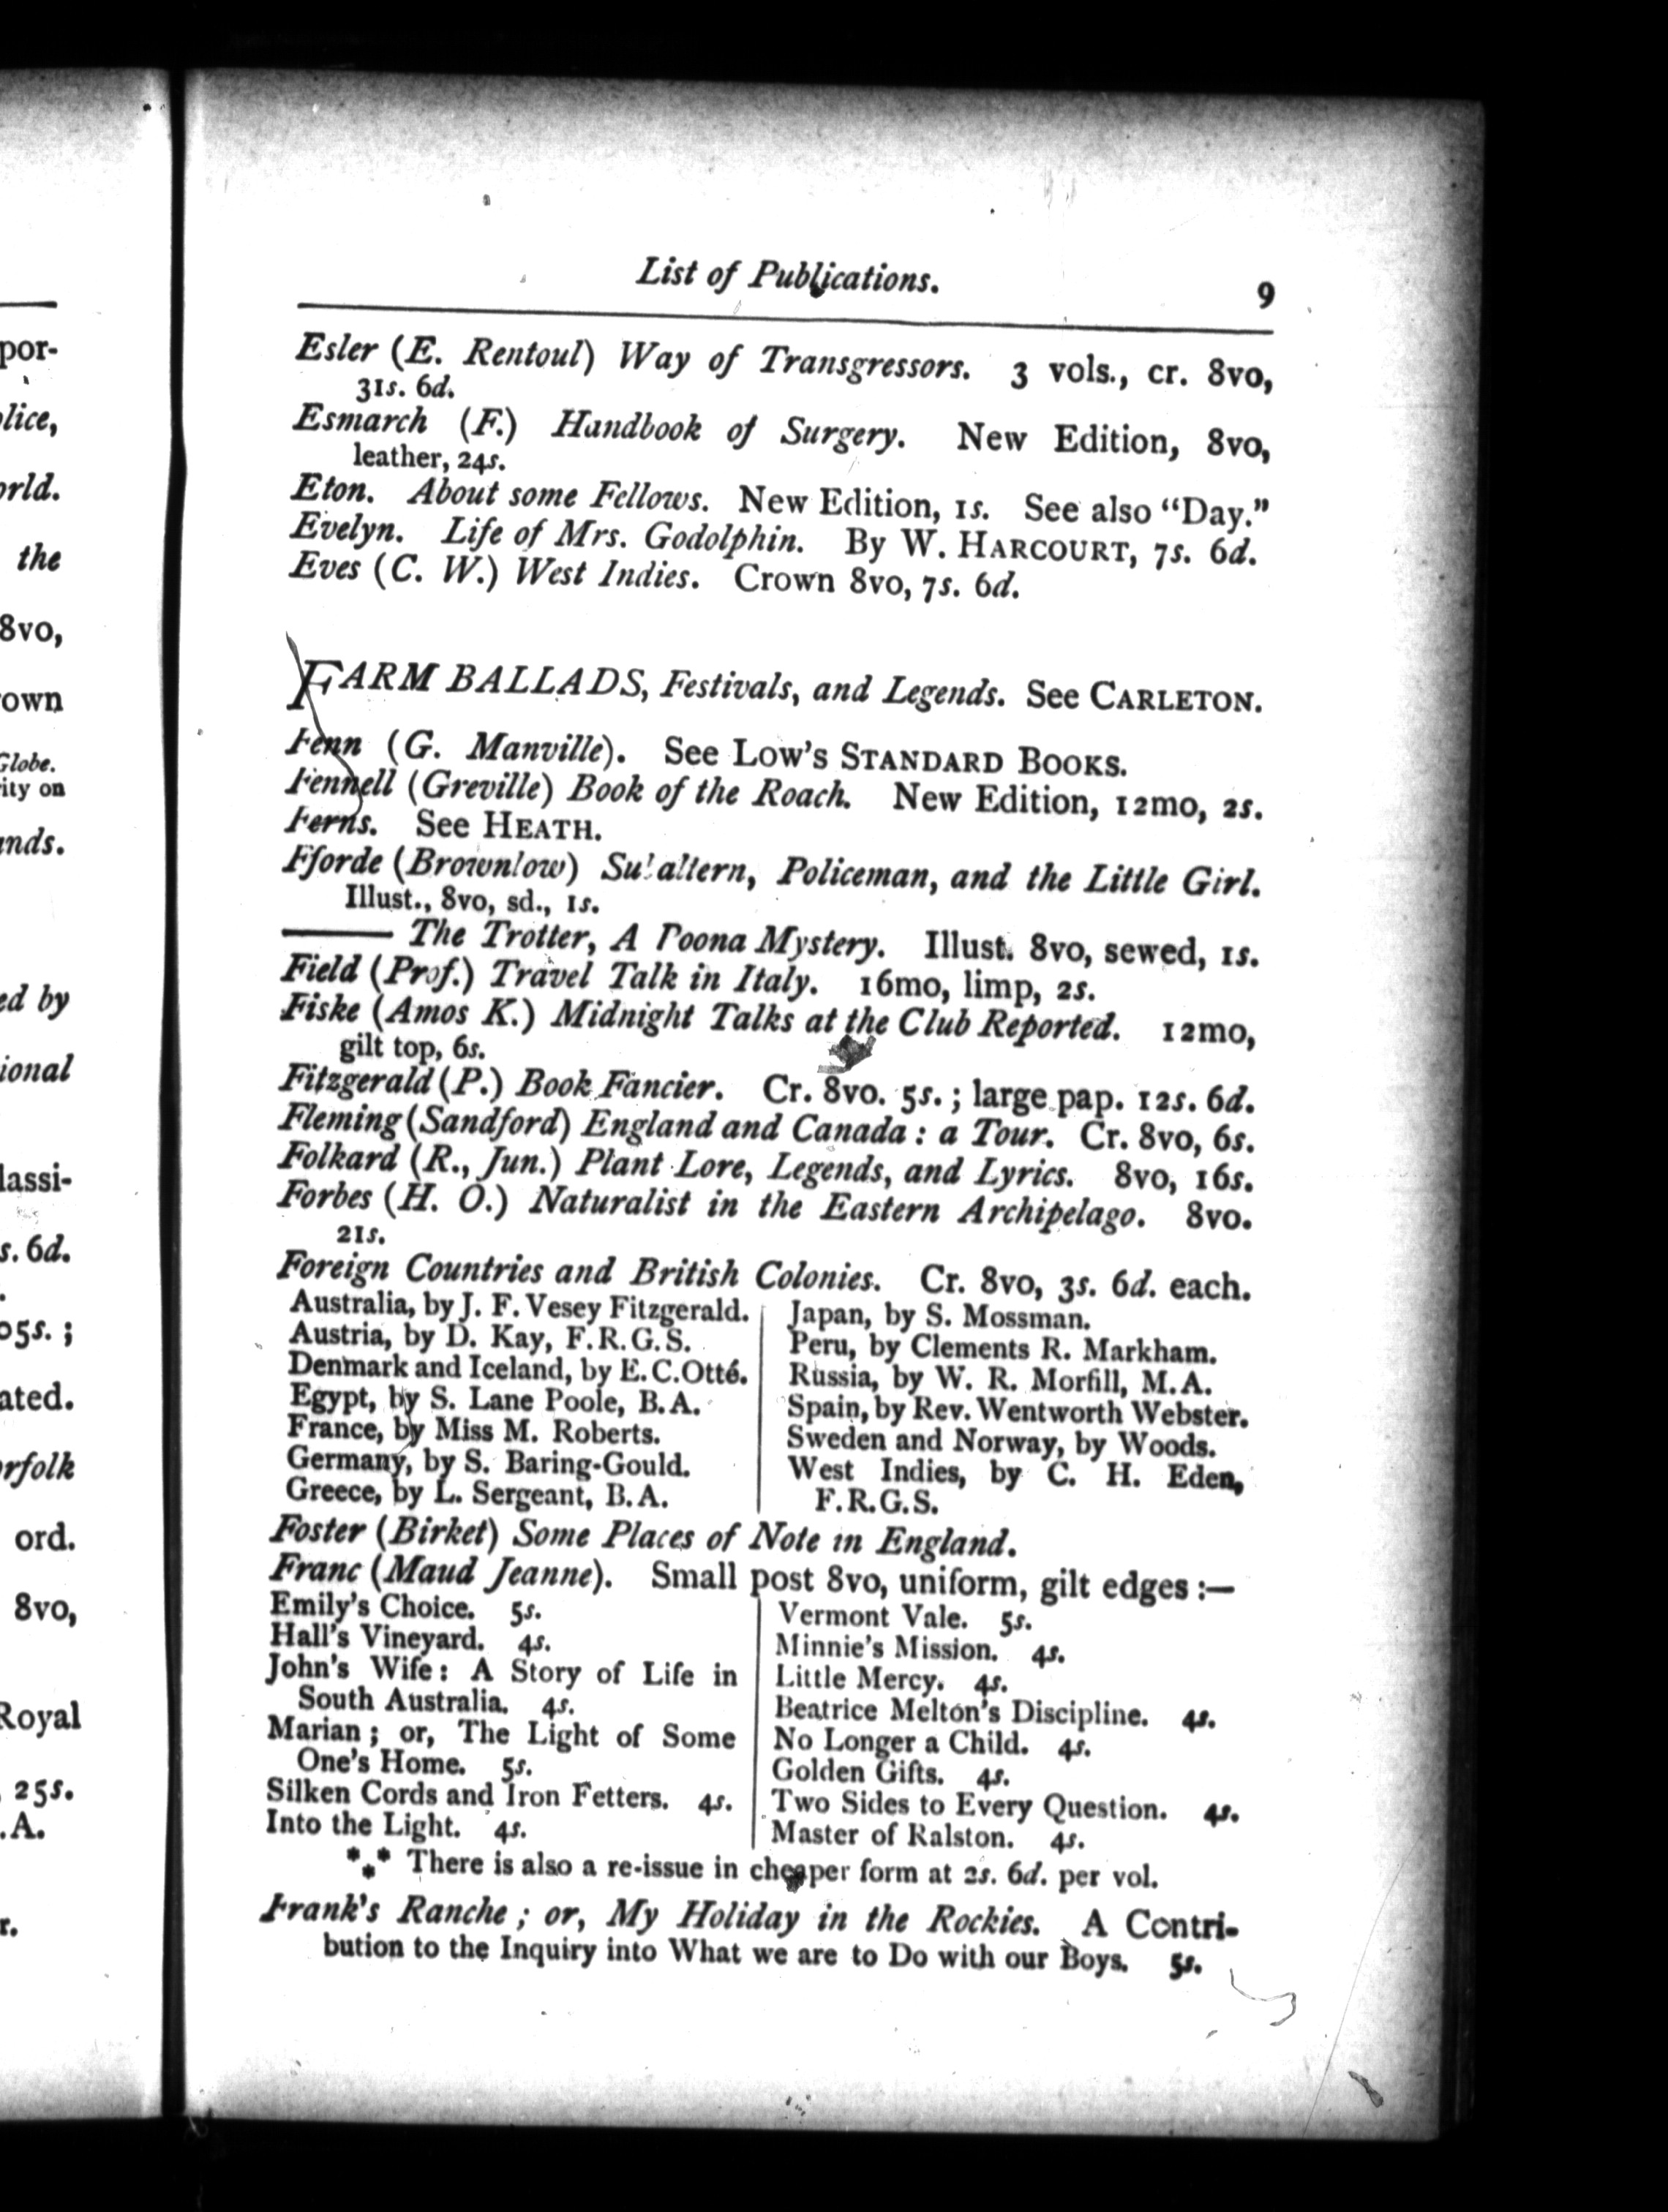 List of Publications. 9
Esler (E. Rentoul) Way of Transgressors. 3 vols., cr. 8vo,
31s. 6d.
Esmarch (F.) Handbook of Surgery. New Edition, 8vo,
leather, 24s.
Eton. About some Fellows. New Edition, 1s. See also "Day."
Evelyn. Life of Mrs. Godolphin. By W. HARCOURT, 7s. 6d.
Eves (C. W.) West Indies. Crown 8vo, 7s. 6d.
FARM BALLADS, Festivals, and Legends. See CARLETON.
Fenn (G. Manville). See LOW'S STANDARD BOOKS.
Fennell (Greville) Book of the Roach. New Edition, 12mo, 2s.
Ferns. See HEATH.
Fforde (Brownlow) Subaltern, Policeman, and the Little Girl.
Illust., 8vo, sd., 1s.
——— The Trotter, A Poona Mystery. Illust. 8vo, sewed, 1s.
Field (Prof.) Travel Talk in Italy. 16mo, limp, 2s.
Fiske (Amos K.) Midnight Talks at the Club Reported. 12mo,
gilt top, 6s.
Fitzgerald (P.) Book Fancier. Cr. 8vo. 5s.; large pap. 12s. 6d.
Fleming (Sandford) England and Canada: a Tour. Cr. 8vo, 6s.
Folkard (R., Jun.) Plant Lore, Legends, and Lyrics. 8vo, 16s.
Forbes (H. O.) Naturalist in the Eastern Archipelago. 8vo.
21s.
Foreign Countries and British Colonies. Cr. 8vo, 3s. 6d. each.
Australia, by J. F. Vesey Fitzgerald.
Austria, by D. Kay, F.R.G.S.
Denmark and Iceland, by E. C. Otté.
Egypt, by S. Lane Poole, B.A.
France, by Miss M. Roberts.
Germany, by S. Baring-Gould.
Greece, by L. Sergeant, B.A.
Japan, by S. Mossman.
Peru, by Clements R. Markham.
Russia, by W. R. Morfill, M.A.
Spain, by Rev. Wentworth Webster.
Sweden and Norway, by Woods.
West Indies, by C. H. Eden,
F.R.G.S.
Foster (Birket) Some Places of Note in England.
Franc (Maud Jeanne). Small post 8vo, uniform, gilt edges:—
Emily's Choice. 5s.
Hall's Vineyard. 4s.
John's Wife: A Story of Life in
South Australia. 4s.
Marian; or, The Light of Some
One's Home. 5s.
Silken Cords and Iron Fetters. 4s.
Into the Light. 4s.
Vermont Vale. 5s.
Minnie's Mission. 4s.
Little Mercy. 4s.
Beatrice Melton's Discipline. 4s.
No Longer a Child. 4s.
Golden Gifts. 4s.
Two Sides to Every Question. 4s.
Master of Ralston. 4s.
*** There is also a re-issue in cheaper form at 2s. 6d. per vol.
Frank's Ranche; or, My Holiday in the Rockies. A Contri-
bution to the Inquiry into What we are to Do with our Boys. 5s.